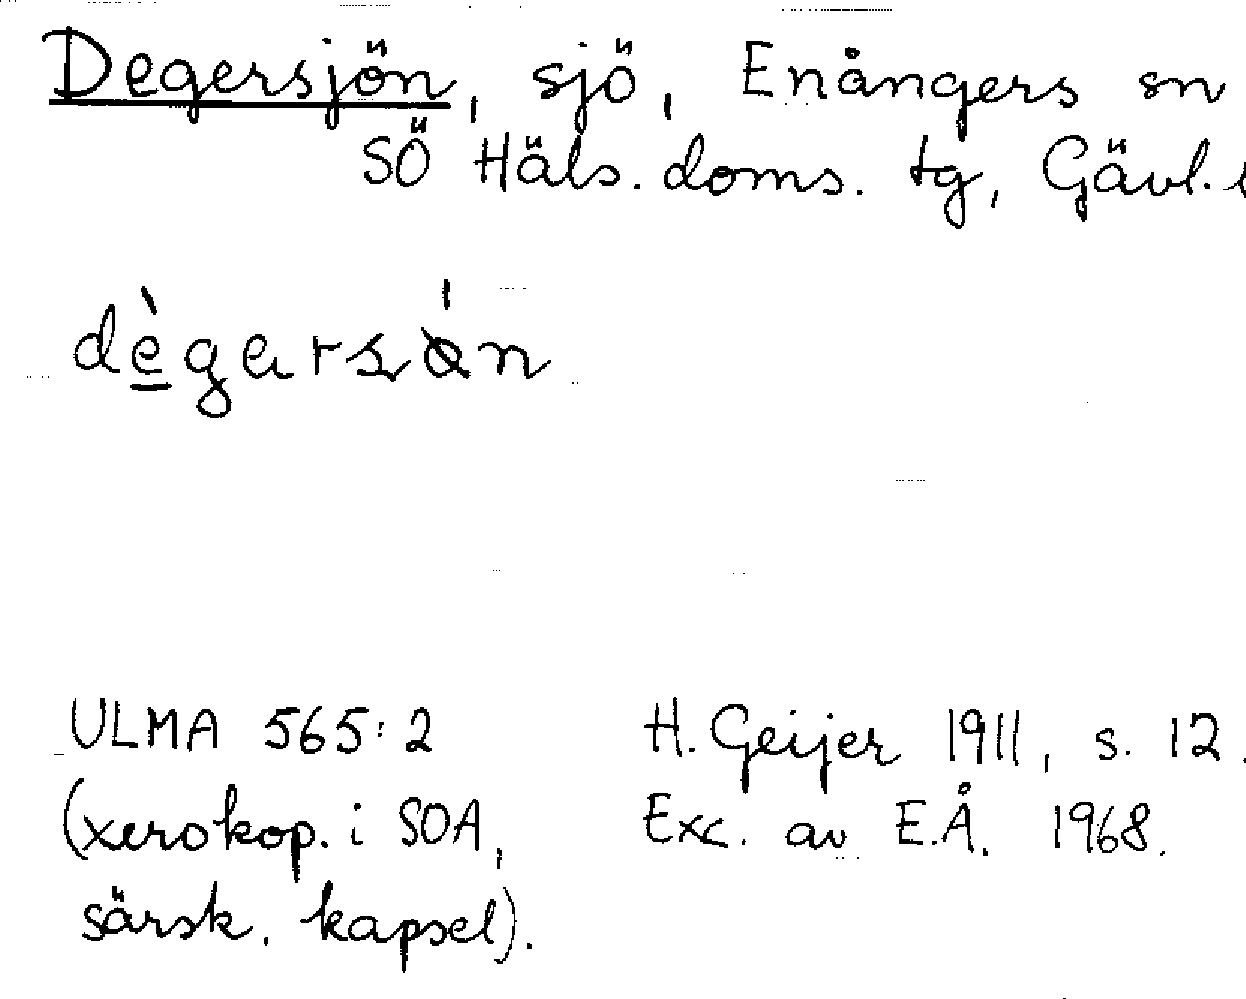 Degersjön, sjö, Enångers sn
SÖ Häls. doms. tg, Gävl.
ULMA 565:2
(xerokop. i SOA,
särsk. kapsel).
H. Geijer 1911, s. 12.
Exc. av E.Å. 1968.